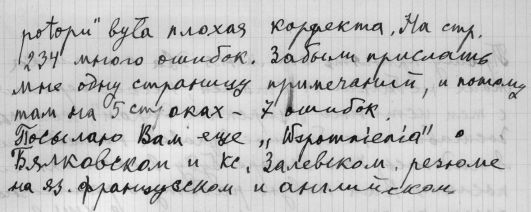 ротори" была плохая корректа. На стр.
234 много ошибок. Забыли прислать
мне одну страницу примечаний, и потому
там на 5 строках – 7 ошибок.
Посылаю Вам еще „Wspomnienia" о
Бялковском и кс. Залевском. резюме
на яз. французском и английском